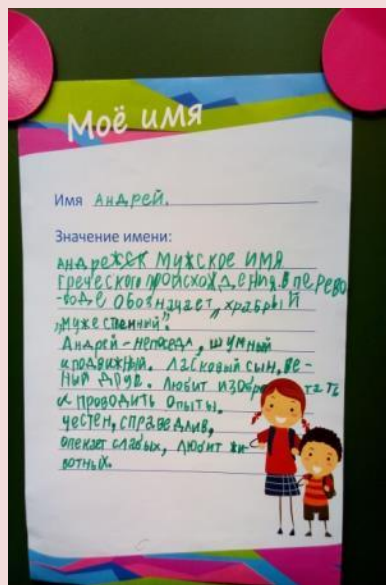 Моё имя
Имя Андрей.
Значение имени:
Андрей мужское имя
греческого происхождения. В перево
-воде обозначает „храбрый
„мужественный".
Андрей - непоседа, шумный
и подвижный. Ласковый сын, ве-
ный друг. Любит изобретать
и проводить опыты.
Честен, справедлив,
опекает слабых, любит жи-
вотных.